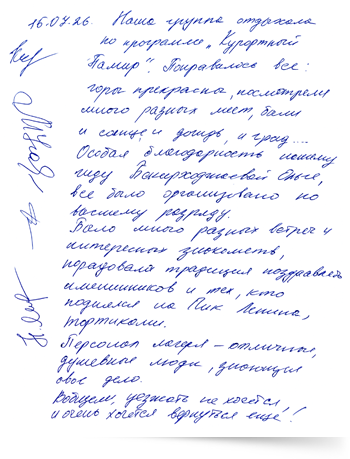 16.07.26. Наша группа отдыхала
по программе „Курортный
Памир”. Понравилось все:
горы прекрасны, посмотрели
много разных мест, были
и солнце и дождь, и град....
Особая благодарность нашему
гиду Ольге,
все было организовано по
высшему разряду.
Было много разных встреч и
интересных знакомств,
порадовала традиция поздравлять
именинников и тех, кто
поднялся на Пик Ленина,
тортиками.
Персонал лагеря – отличные,
душевные люди, знающие
свое дело.
Вобщем, уезжать не хочется
и очень хочется вернуться еще!!